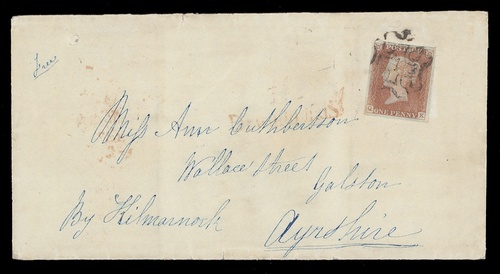 Free
POSTAGE
ONE PENNY
Miss Ann Cuthbertson
Wallace Street
Galston
By Kilmarnock
Ayrshire